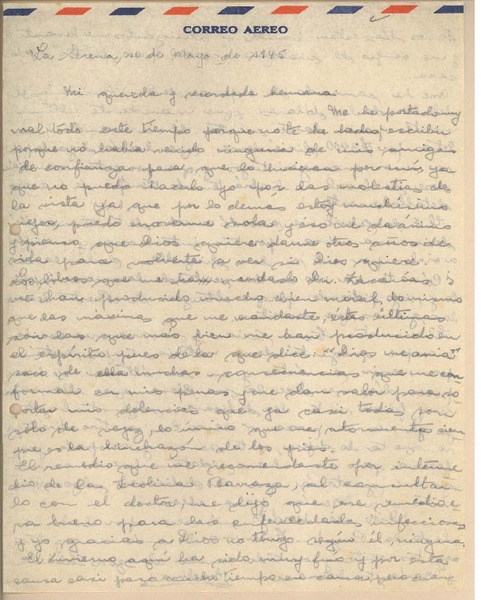 CORREO AEREO
La Serena, 20 de Mayo de 1945
Mi querida y recordada hermana:
Me he portado muy
mal todo este tiempo porque no te he escrito
porque no había venido ninguna de mis amigas
de confianza para que lo hicieran por mí, ya
que no puedo hacerlo yo por las molestias de
la vista ya que por lo demas estoy muchísimo
mejor, puedo moverme sola y eso me da ánimo
y pienso que Dios quiere darme otros años de
vida para volverte a ver si Dios quiere.
Los libros que me has mandado
me han producido mucho bien moral, lo mismo
que las máximas que me mandaste, estas últimas
son las que mas bien me han producido en
el espíritu pues de la que dice "Dios me ama"
saco de ella muchas consecuencias que me con-
forman en mis penas y me dan valor para so-
portar mis dolencias que ya casi todas son
sólo de vejez, lo único que me atormenta siem
pre es la hinchazón de los pies.
El remedio que me recomendaste por interme
dio de las Carranza, al consultar
lo con el doctor, me dijo que ese remedio e
ra bueno para las enfermedades infecciosas
y yo gracias a Dios no tengo según él ninguna.
El invierno aquí ha sido muy frío y por esta
causa casi paso mucho tiempo en cama, pero